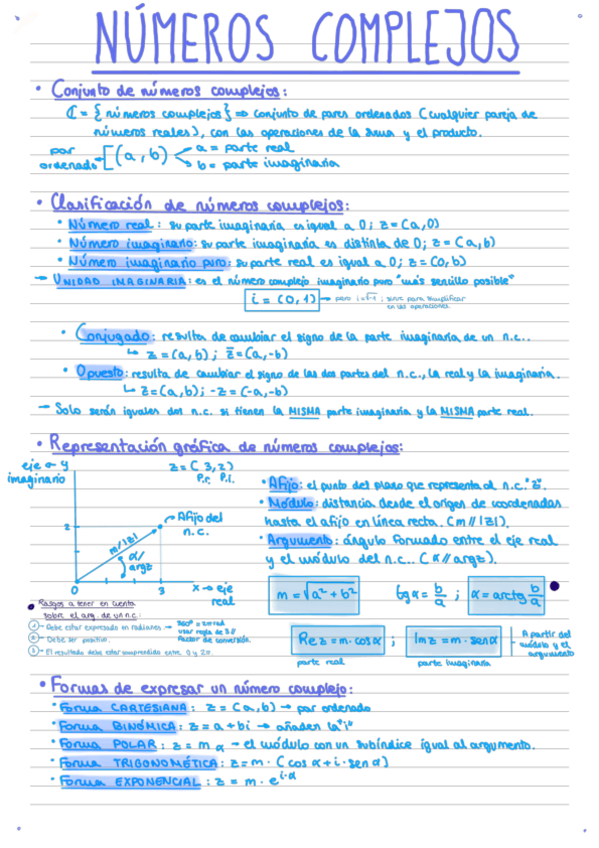 NÚMEROS COMPLEJOS
• Conjunto de números complejos:
ℂ = { números complejos } ⇒ conjunto de pares ordenados (cualquier pareja de
números reales), con las operaciones de la suma y el producto.
par ordenado [(a, b) a = parte real
b = parte imaginaria
• Clasificación de números complejos:
• Número real: su parte imaginaria es igual a 0; z = (a, 0)
• Número imaginario: su parte imaginaria es distinta de 0; z = (a, b)
• Número imaginario puro: su parte real es igual a 0; z = (0, b)
→ UNIDAD IMAGINARIA: es el número complejo imaginario puro "más sencillo posible"
i = (0, 1) → pero i=√-1; sirve para simplificar
en las operaciones.
• Conjugado: resulta de cambiar el signo de la parte imaginaria de un n.c..
↳ z = (a, b) ; z̄ = (a, -b)
• Opuesto: resulta de cambiar el signo de las dos partes del n.c., la real y la imaginaria.
↳ z = (a, b) ; -z = (-a, -b)
→ Solo serán iguales dos n.c. si tienen la MISMA parte imaginaria y la MISMA parte real.
• Representación gráfica de números complejos:
eje ← y
imaginario
z = (3, 2)
P.r. P.i.
2
m/|z|
α/
argz
Afijo del
n.c.
0
3
x → eje
real
• Afijo: el punto del plano que representa al n.c. "z".
• Módulo: distancia desde el origen de coordenadas
hasta el afijo en línea recta. (m // |z|).
• Argumento: ángulo formado entre el eje real
y el módulo del n.c.. (α // argz).
m = √a² + b²
tg α = b/a ; α = arctg b/a
• Rasgos a tener en cuenta
sobre el arg. de un n.c.:
1 - Debe estar expresado en radianes → 360° = 2π rad
usar regla de 3 //
factor de conversión.
2 - Debe ser positivo.
3 - El resultado debe estar comprendido entre 0 y 2π.
Re z = m · cos α ; Im z = m · sen α
parte real
parte imaginaria
A partir del
módulo y el
argumento
• Formas de expresar un número complejo:
• Forma CARTESIANA: z = (a, b) → par ordenado
• Forma BINÓMICA: z = a + bi → añaden la "i"
• Forma POLAR: z = m α → el módulo con un subíndice igual al argumento.
• Forma TRIGONOMÉTICA: z = m · (cos α + i · sen α)
• Forma EXPONENCIAL: z = m · e^i·α